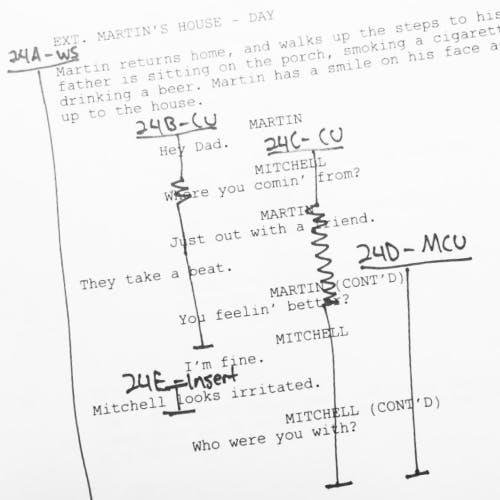 EXT. MARTIN'S HOUSE - DAY
24A-WS
Martin returns home, and walks up the steps to his
father is sitting on the porch, smoking a cigarett
drinking a beer. Martin has a smile on his face a
up to the house.
24B-CU
MARTIN
Hey Dad.
24C-CU
MITCHELL
Where you comin' from?
MARTIN
Just out with a friend.
24D-MCU
They take a beat.
MARTIN (CONT'D)
You feelin' better?
MITCHELL
I'm fine.
24E-Insert
Mitchell looks irritated.
MITCHELL (CONT'D)
Who were you with?